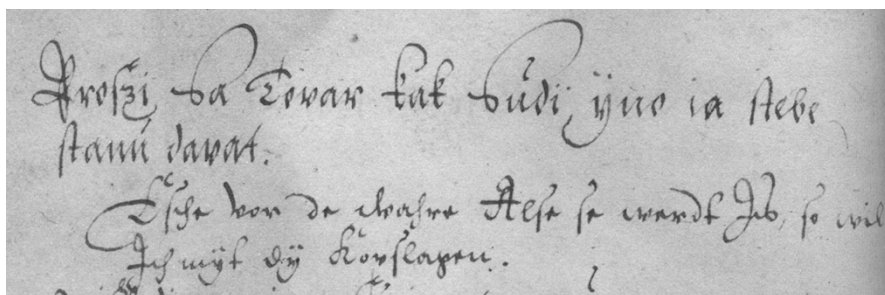 Proszi sa Tovar kak sudi, ÿno ia stebe
stanu davat.
Esche vor de wahre Alse se werdt Is, so wil
Ich myt dÿ Kopslagen.